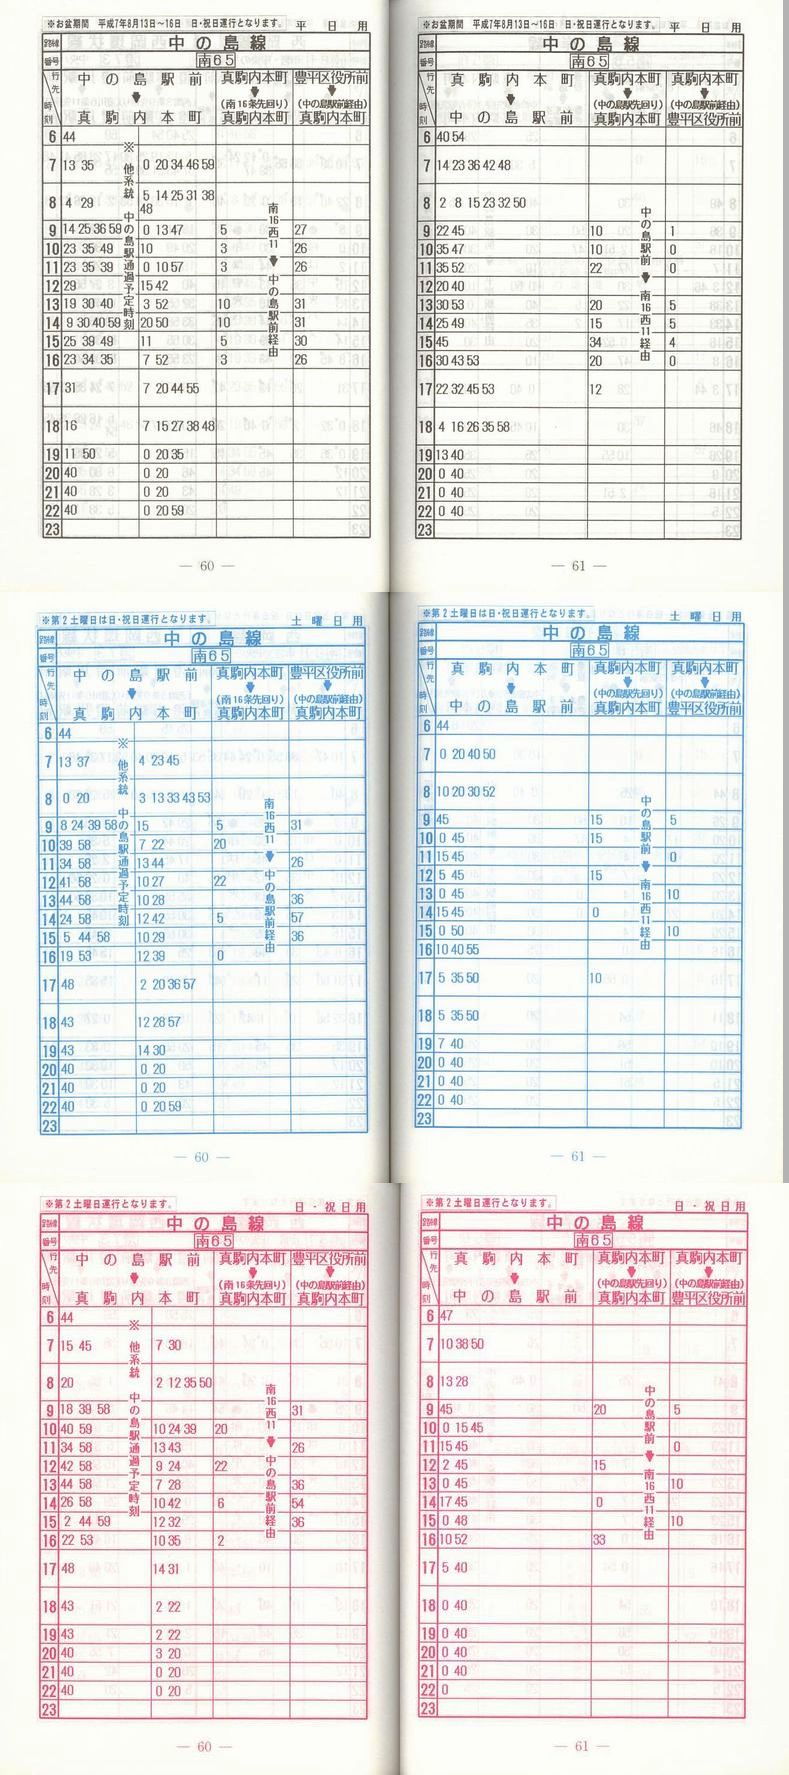 ※お盆期間　平成7年8月13日～16日　日・祝日運行となります。 平　日　用
路線 中の島線
番号 南65
行先 時刻 中の島駅前 真駒内本町 豊平区役所前
(南16条先回り) (中の島駅前経由)
真駒内本町 真駒内本町 真駒内本町
※他系統　中の島駅通過予定時刻
南16西11 中の島駅前経由
6 44
7 13 35 0 20 34 46 59
8 4 29 5 14 25 31 38
48
9 14 25 36 59 0 13 47 5 27
10 23 35 49 10 3 26
11 23 35 39 0 10 57 3 26
12 29 15 42
13 19 30 40 3 52 10 31
14 9 30 40 59 20 50 10 31
15 25 39 49 11 5 30
16 23 34 35 7 52 3 26
17 31 7 20 44 55
18 16 7 15 27 38 48
19 11 50 0 20 35
20 40 0 20
21 40 0 20
22 40 0 20 59
23
― 60 ―
※お盆期間　平成7年8月13日～16日　日・祝日運行となります。 平　日　用
路線 中の島線
番号 南65
行先 時刻 真駒内本町 真駒内本町 真駒内本町
(中の島駅先回り) (中の島駅前経由)
中の島駅前 真駒内本町 豊平区役所前
中の島駅前 南16西11経由
6 40 54
7 14 23 36 42 48
8 2 8 15 23 32 50
9 22 45 10 1
10 35 47 10 0
11 35 52 22 0
12 20 40
13 30 53 20 5
14 25 49 15 5
15 45 34 4
16 30 43 53 20 0
17 22 32 45 53 12
18 4 16 26 35 58
19 13 40
20 0 40
21 0 40
22 0 40
23
― 61 ―
※第2土曜日は日・祝日運行となります。 土　曜　日　用
路線 中の島線
番号 南65
行先 時刻 中の島駅前 真駒内本町 豊平区役所前
(南16条先回り) (中の島駅前経由)
真駒内本町 真駒内本町 真駒内本町
※他系統　中の島駅通過予定時刻
南16西11 中の島駅前経由
6 44
7 13 37 4 23 45
8 0 20 3 13 33 43 53
9 8 24 39 58 15 5 31
10 39 58 7 22 20
11 34 58 13 44 26
12 41 58 10 27 22
13 44 58 10 28 36
14 24 58 12 42 5 57
15 5 44 58 10 29 36
16 19 53 12 39 0
17 48 2 20 36 57
18 43 12 28 57
19 43 14 30
20 40 0 20
21 40 0 20
22 40 0 20 59
23
― 60 ―
※第2土曜日は日・祝日運行となります。 土　曜　日　用
路線 中の島線
番号 南65
行先 時刻 真駒内本町 真駒内本町 真駒内本町
(中の島駅先回り) (中の島駅前経由)
中の島駅前 真駒内本町 豊平区役所前
中の島駅前 南16西11経由
6 44
7 0 20 40 50
8 10 20 30 52
9 45 15 5
10 0 45 15
11 15 45 0
12 5 45 15
13 0 45 10
14 15 45 0
15 0 50 10
16 10 40 55
17 5 35 50 10
18 5 35 50
19 7 40
20 0 40
21 0 40
22 0 40
23
― 61 ―
※第2土曜日運行となります。 日・祝日用
路線 中の島線
番号 南65
行先 時刻 中の島駅前 真駒内本町 豊平区役所前
(南16条先回り) (中の島駅前経由)
真駒内本町 真駒内本町 真駒内本町
※他系統　中の島駅通過予定時刻
南16西11 中の島駅前経由
6 44
7 15 45 7 30
8 20 2 12 35 50
9 18 39 58 31
10 40 59 10 24 39 20
11 34 58 13 43 26
12 42 58 9 24 22
13 44 58 7 28 36
14 26 58 10 42 6 54
15 2 44 59 12 32 36
16 22 53 10 35 2
17 48 14 31
18 43 2 22
19 43 2 22
20 40 3 20
21 40 0 20
22 40 0 20
23
― 60 ―
※第2土曜日運行となります。 日・祝日用
路線 中の島線
番号 南65
行先 時刻 真駒内本町 真駒内本町 真駒内本町
(中の島駅先回り) (中の島駅前経由)
中の島駅前 真駒内本町 豊平区役所前
中の島駅前 南16西11経由
6 47
7 10 38 50
8 13 28
9 45 20 5
10 0 15 45
11 15 45 0
12 2 45 15
13 0 45 10
14 17 45 0
15 0 48 10
16 10 52 33
17 5 40
18 0 40
19 0 40
20 0 40
21 0 40
22 0
23
― 61 ―